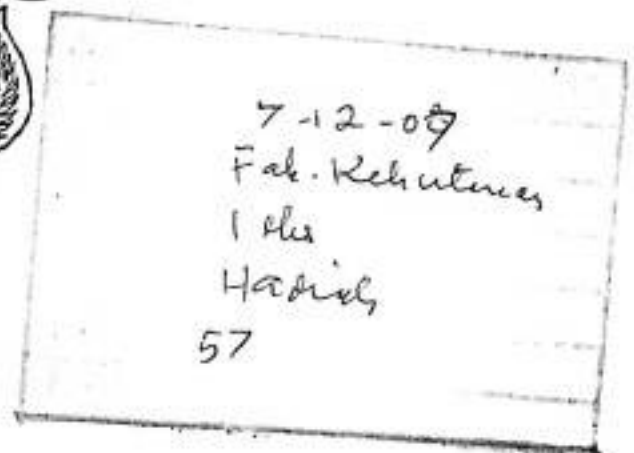 7-12-09
Fak. Kehutanan
1 eks
Hadiah
57